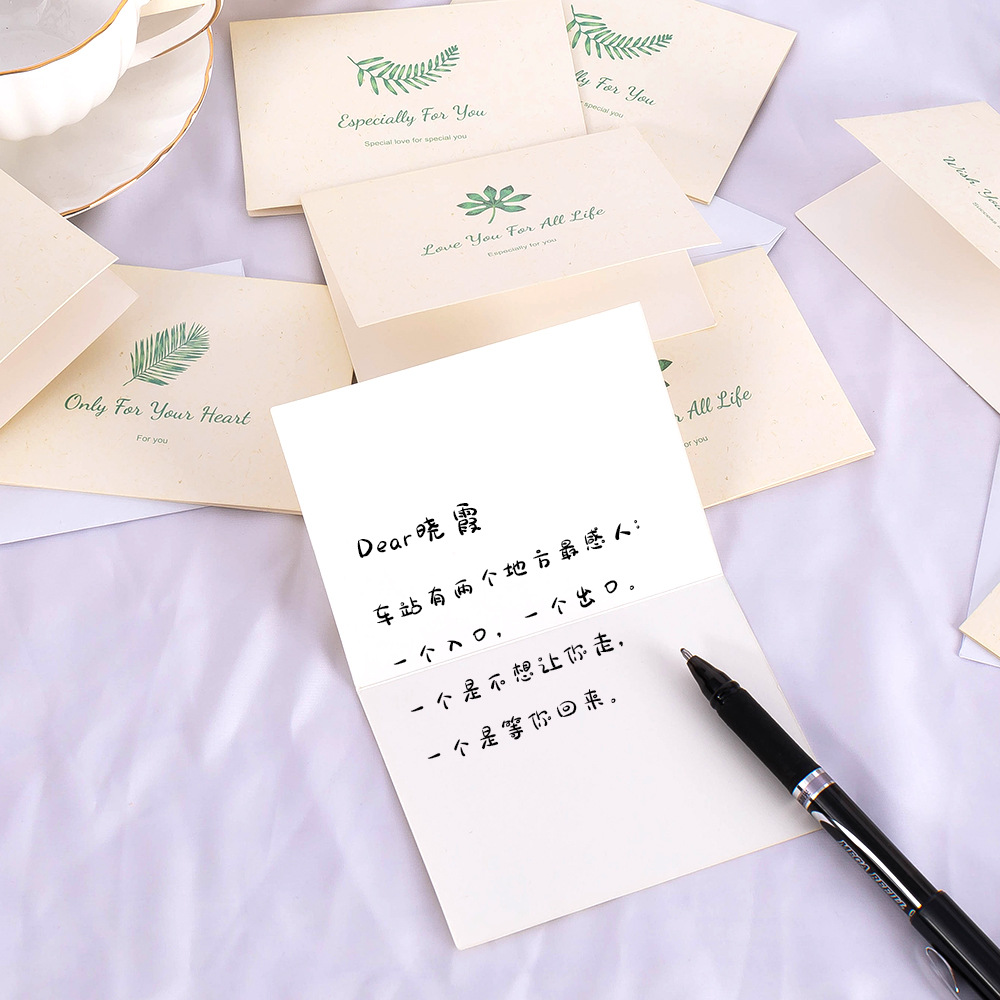 Especially For You
Special love for special you
lly For You
special you
Love You For All Life
Especially for you
Wish You
Only For Your Heart
For you
r All Life
or you
Dear晓霞
车站有两个地方最感人:
一个入口，一个出口。
一个是不想让你走，
一个是等你回来。